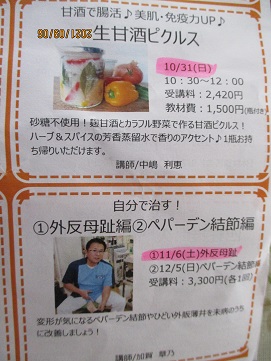 甘酒で腸活♪美肌・免疫力UP♪
生甘酒ピクルス
10/31(日)
10:30～12:00
受講料:2,420円
教材費:1,500円(瓶付き)
砂糖不使用!麹甘酒とカラフル野菜で作る甘酒ピクルス!
ハーブ&スパイスの芳香蒸留水で香りのアクセント♪1瓶お
持ち帰りいただけます。
講師/中嶋 利恵
自分で治す!
①外反母趾編②ペパーデン結節編
①11/6(土)外反母趾
②12/5(日)ペパーデン結節
受講料:3,300円(各1回)
変形が気になるペパーデン結節やひどい外反母趾を未病のうち
に改善しましょう!
講師/加賀